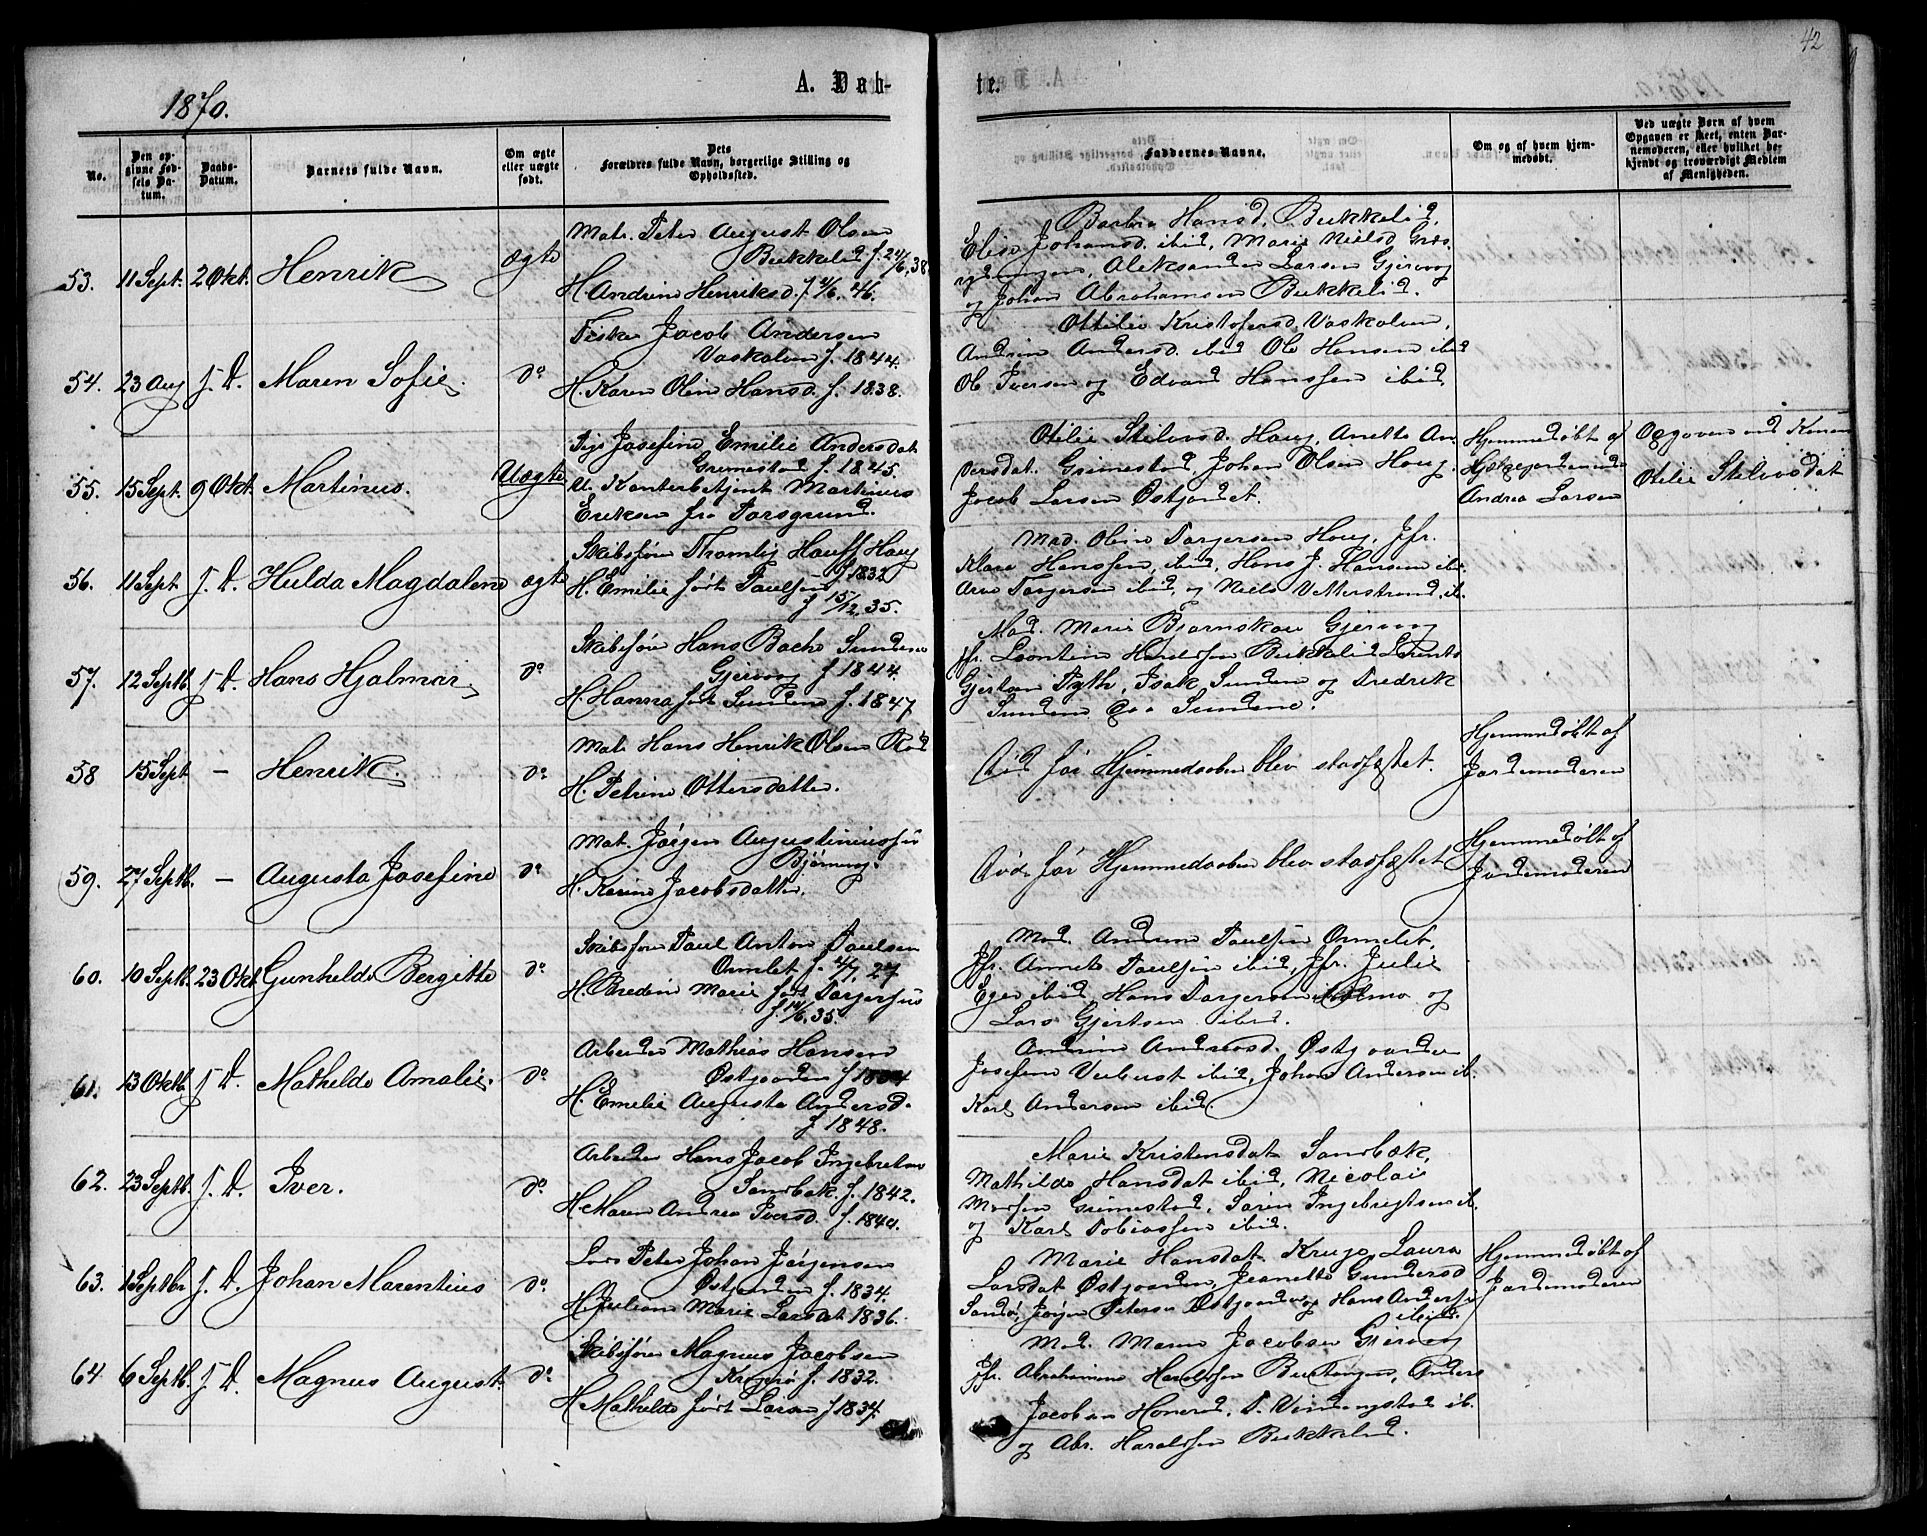 42
1870.
A. Døb-
te.
No.
Den op-
givne Fød-
sels Da-
tum.
Daabs-
Datum.
Barnets fulde Navn.
Om ægte
eller uægte
født.
Dets
Forældres fulde Navn, borgerlige Stilling og
Opholdssted.
Faddernes Navne.
Om og af hvem hjem-
medøbt.
Ved uægte Børn af hvem
Opgaven er skeet, enten Bar-
nemoderen, eller hvilket be-
kjendt og troværdigt Medlem
af Menigheden.
53. 11 Sept. 2 Okt. Henrik ægte
Matr. Peter August Olsen
Bukkelid f. 24/6, 38
H. Andrine Henriksd. f. 2/6. 46.
Barbra Hansd. Bukkelid,
Elise Johansd. ibid, Marie Nielsd
Aleksander Larsen Gjervog
og Johan Abrahamsen Bukkelid.
54. 23 Aug s. D. Maren Sofie do
Fisker Jacob Andersen
Vaskalven f. 1844.
H. Karen Oline Hansd. f. 1838.
Ottilie Kristofersd. Vaskalven,
Andrine Andersd. ibid Ole Hansen ibid
Ole Iversen og Edvard Hanssen ibid
55. 15 Sept. 9 Okt. Martinus. Uægte
Pige Josefine Emilie Andersdat
Grimestad f. 1845.
U. Kontorbetjent Martinus
Eriksen fra Porsgrund.
Otilie Stilvsd. Houg, Anette An-
dersdat. Grimestad, Johan Olsen Houg.
Jacob Larsen Østgordet.
Hjemmedøbt af
Andrea Larsen
Opgaven ved Konen
Otilie Stilvsdat
56. 11 Sept s. D. Hulda Magdalene ægte
Skibsfører Thomlig Hauff Houg
f. 1832
H. Emilie født Paulsen
f 15/12, 35.
Mad. Oline Torgersen Houg, Jfr.
Klara Hanssen, ibid, Hans J. Hansen ibid.
Arve Torgersen ibid, og Niels Vetterstrand, ib.
57. 12 Septb. s. D. Hans Hjalmar. do
Skibsfører Hans Bache Sundene
Gjervog f 1844.
H. Hanna født Sundene f. 1847
Mad. Marie Bjørnskau Gjervog
Jfr. Leontine Haraldsen Bukkelid Lorents
Gjertsen Pyth, Isak Sunden og Fredrik
Sunden Sundene.
58 15 Sept — Henrik. do
Matr. Hans Henrik Olsen Rød
H. Petrine Ottersdatter.
Død før Hjemmedaaben blev stadfæstet.
Hjemmedøbt af
Jordemoderen
59. 27 Septb. — Augusta Josefine do
Mat. Jørgen Augustiniussen
Bjønnes.
H. Karine Jacobsdatter.
Død før Hjemmedaaben blev stadfæstet
Hjemmedøbt af
Jordemoderen
60. 10 Septb. 23 Okt. Gunhilde Bergitte do
Skibsfører Paul Anton Paulsen
Ormlet f. 4/7, 27
H. Bredine Marie født Torgersen
f. 14/6, 35.
Mad. Andrine Paulsen Ormelet,
Jfr. Annete Paulsen ibid, Jfr. Julie
Eger ibid, Hans Torgersen Holmen og
Lars Gjertsen ibid.
61. 13 Oktb. s. D. Mathilde Amalie. do
Arbeider Mathias Hansen
Østgaarden f 1844
H. Emilie Augusta Andersd.
f 1848.
Andrine Andreasd. Østgaarden
Josefine Verbust ibid, Johan Andersen ib.
Karl Andersen ibid.
62. 23 Septb. s. D. Iver. do
Arbeider Hans Jacob Ingebretsen
Sandbæk. f. 1842.
H. Maren Andrea Iversd. f. 1844.
Marie Kristensdat Sandbæk,
Mathilde Hansdat ibid, Nicolai
Grimestad, Søren Ingebrigtsen ib.
og Karl Tobiassen ibid.
63. 1 Septbr s. D. Johan Marentius do
Lods Peter Johan Jørgensen
Østgaarden f. 1834.
H. Juliane Marie Larsdat 1836.
Marie Hansdat. Kruge, Laura
Larsdat Østgaarden, Jeanette Gundersd
Sandø, Jørgen Petersen Østgaarden og Hans Andersen
ibid.
Hjemmedøbt af
Jordemoderen
64 6 Septb. s. D. Magnus August. do
Skibsfører Magnus Jacobsen
Kragerø f. 1832.
H Mathilde født Larsen f 1834.
Mad. Maren Jacobsen Gjervog
Jfr. Abrahamine Haraldsen Anders
Jacobsen ib.
og Abr. Haraldsen Bukkelid.